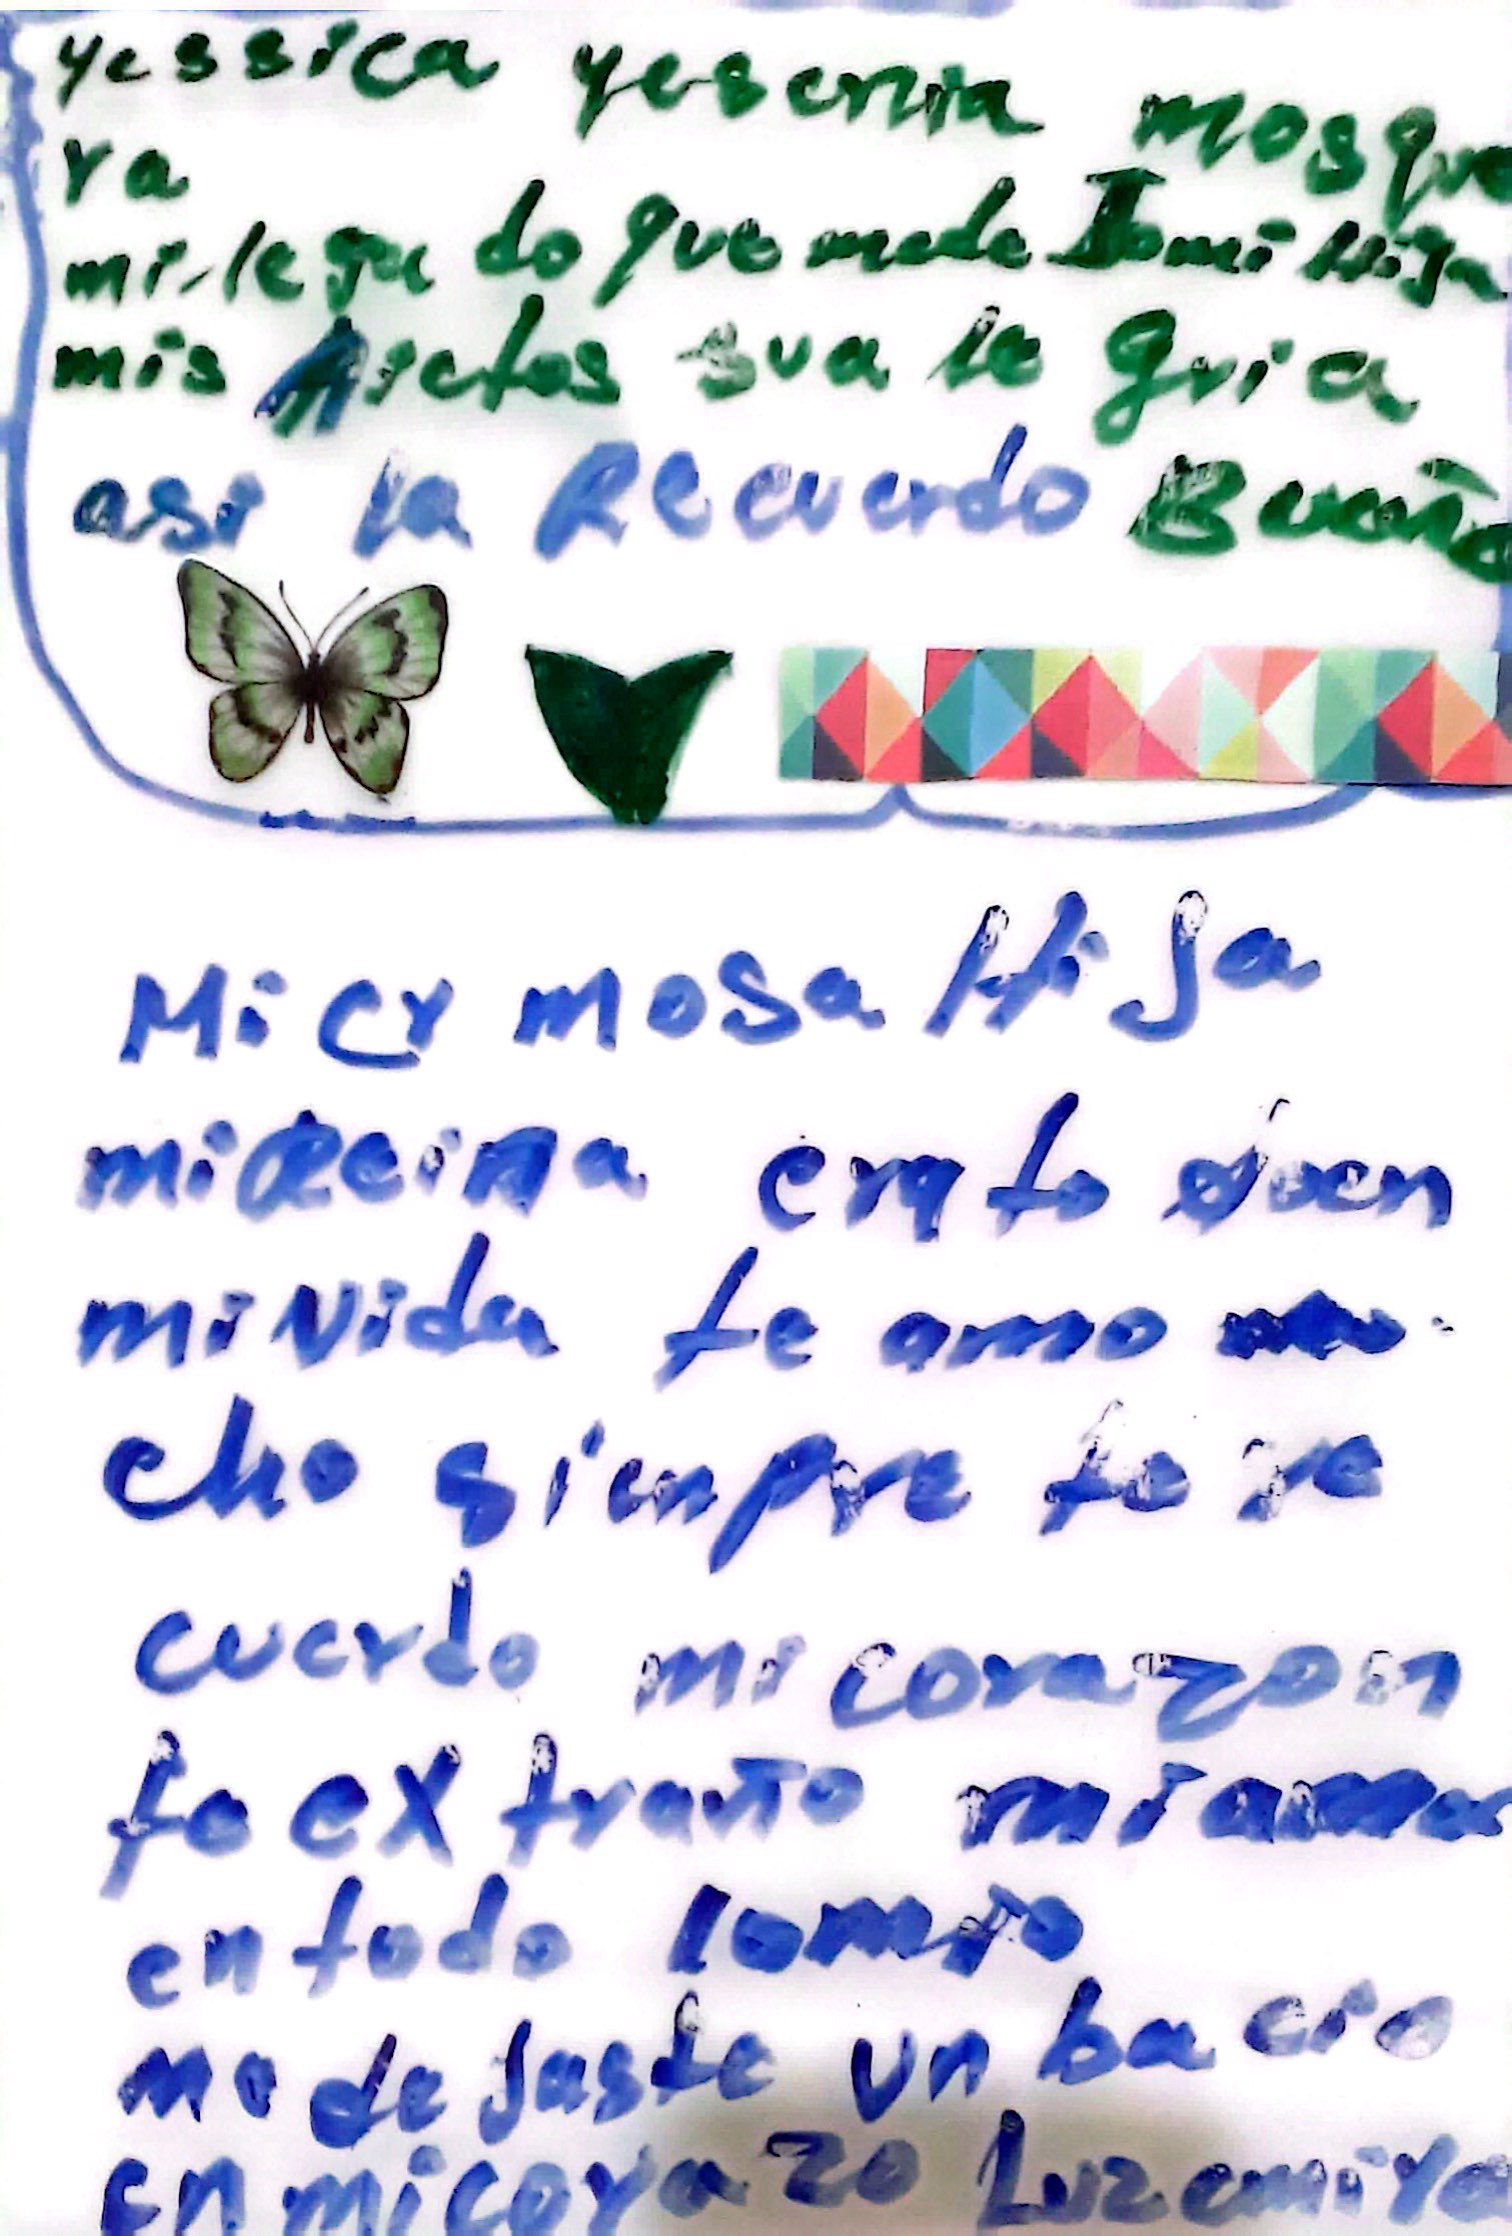 yessica yesenia mosque
ra
mi legado que me de Jo mi Hija
mis A sua le gria
asi la Recuerdo
Mi er mosa Hija
mi Reina era to do en
mi Vida te amo mu
cho siempre te re
cuerdo mi corazon
te extraño mi amor
en todo lo mio
me de jaste un ba cio
en mi corazo Luz emi